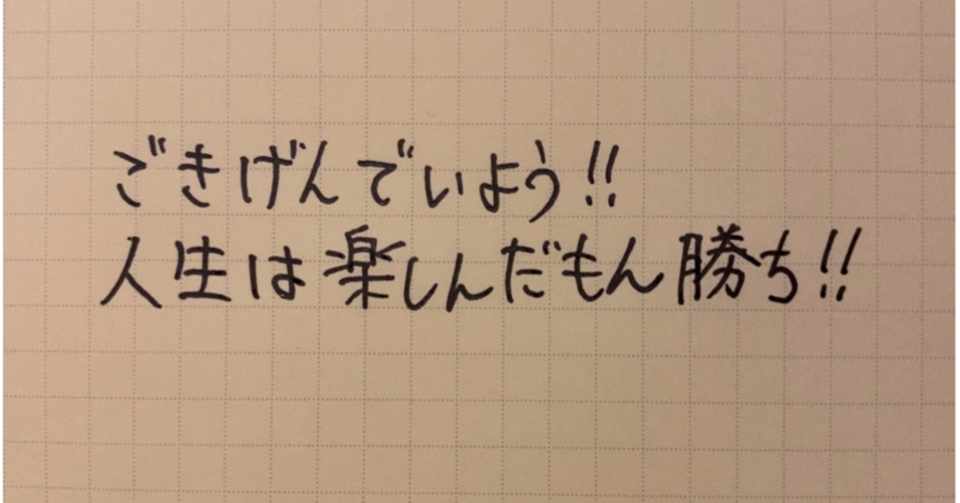 ごきげんでいよう!!
人生は楽しんだもん勝ち!!